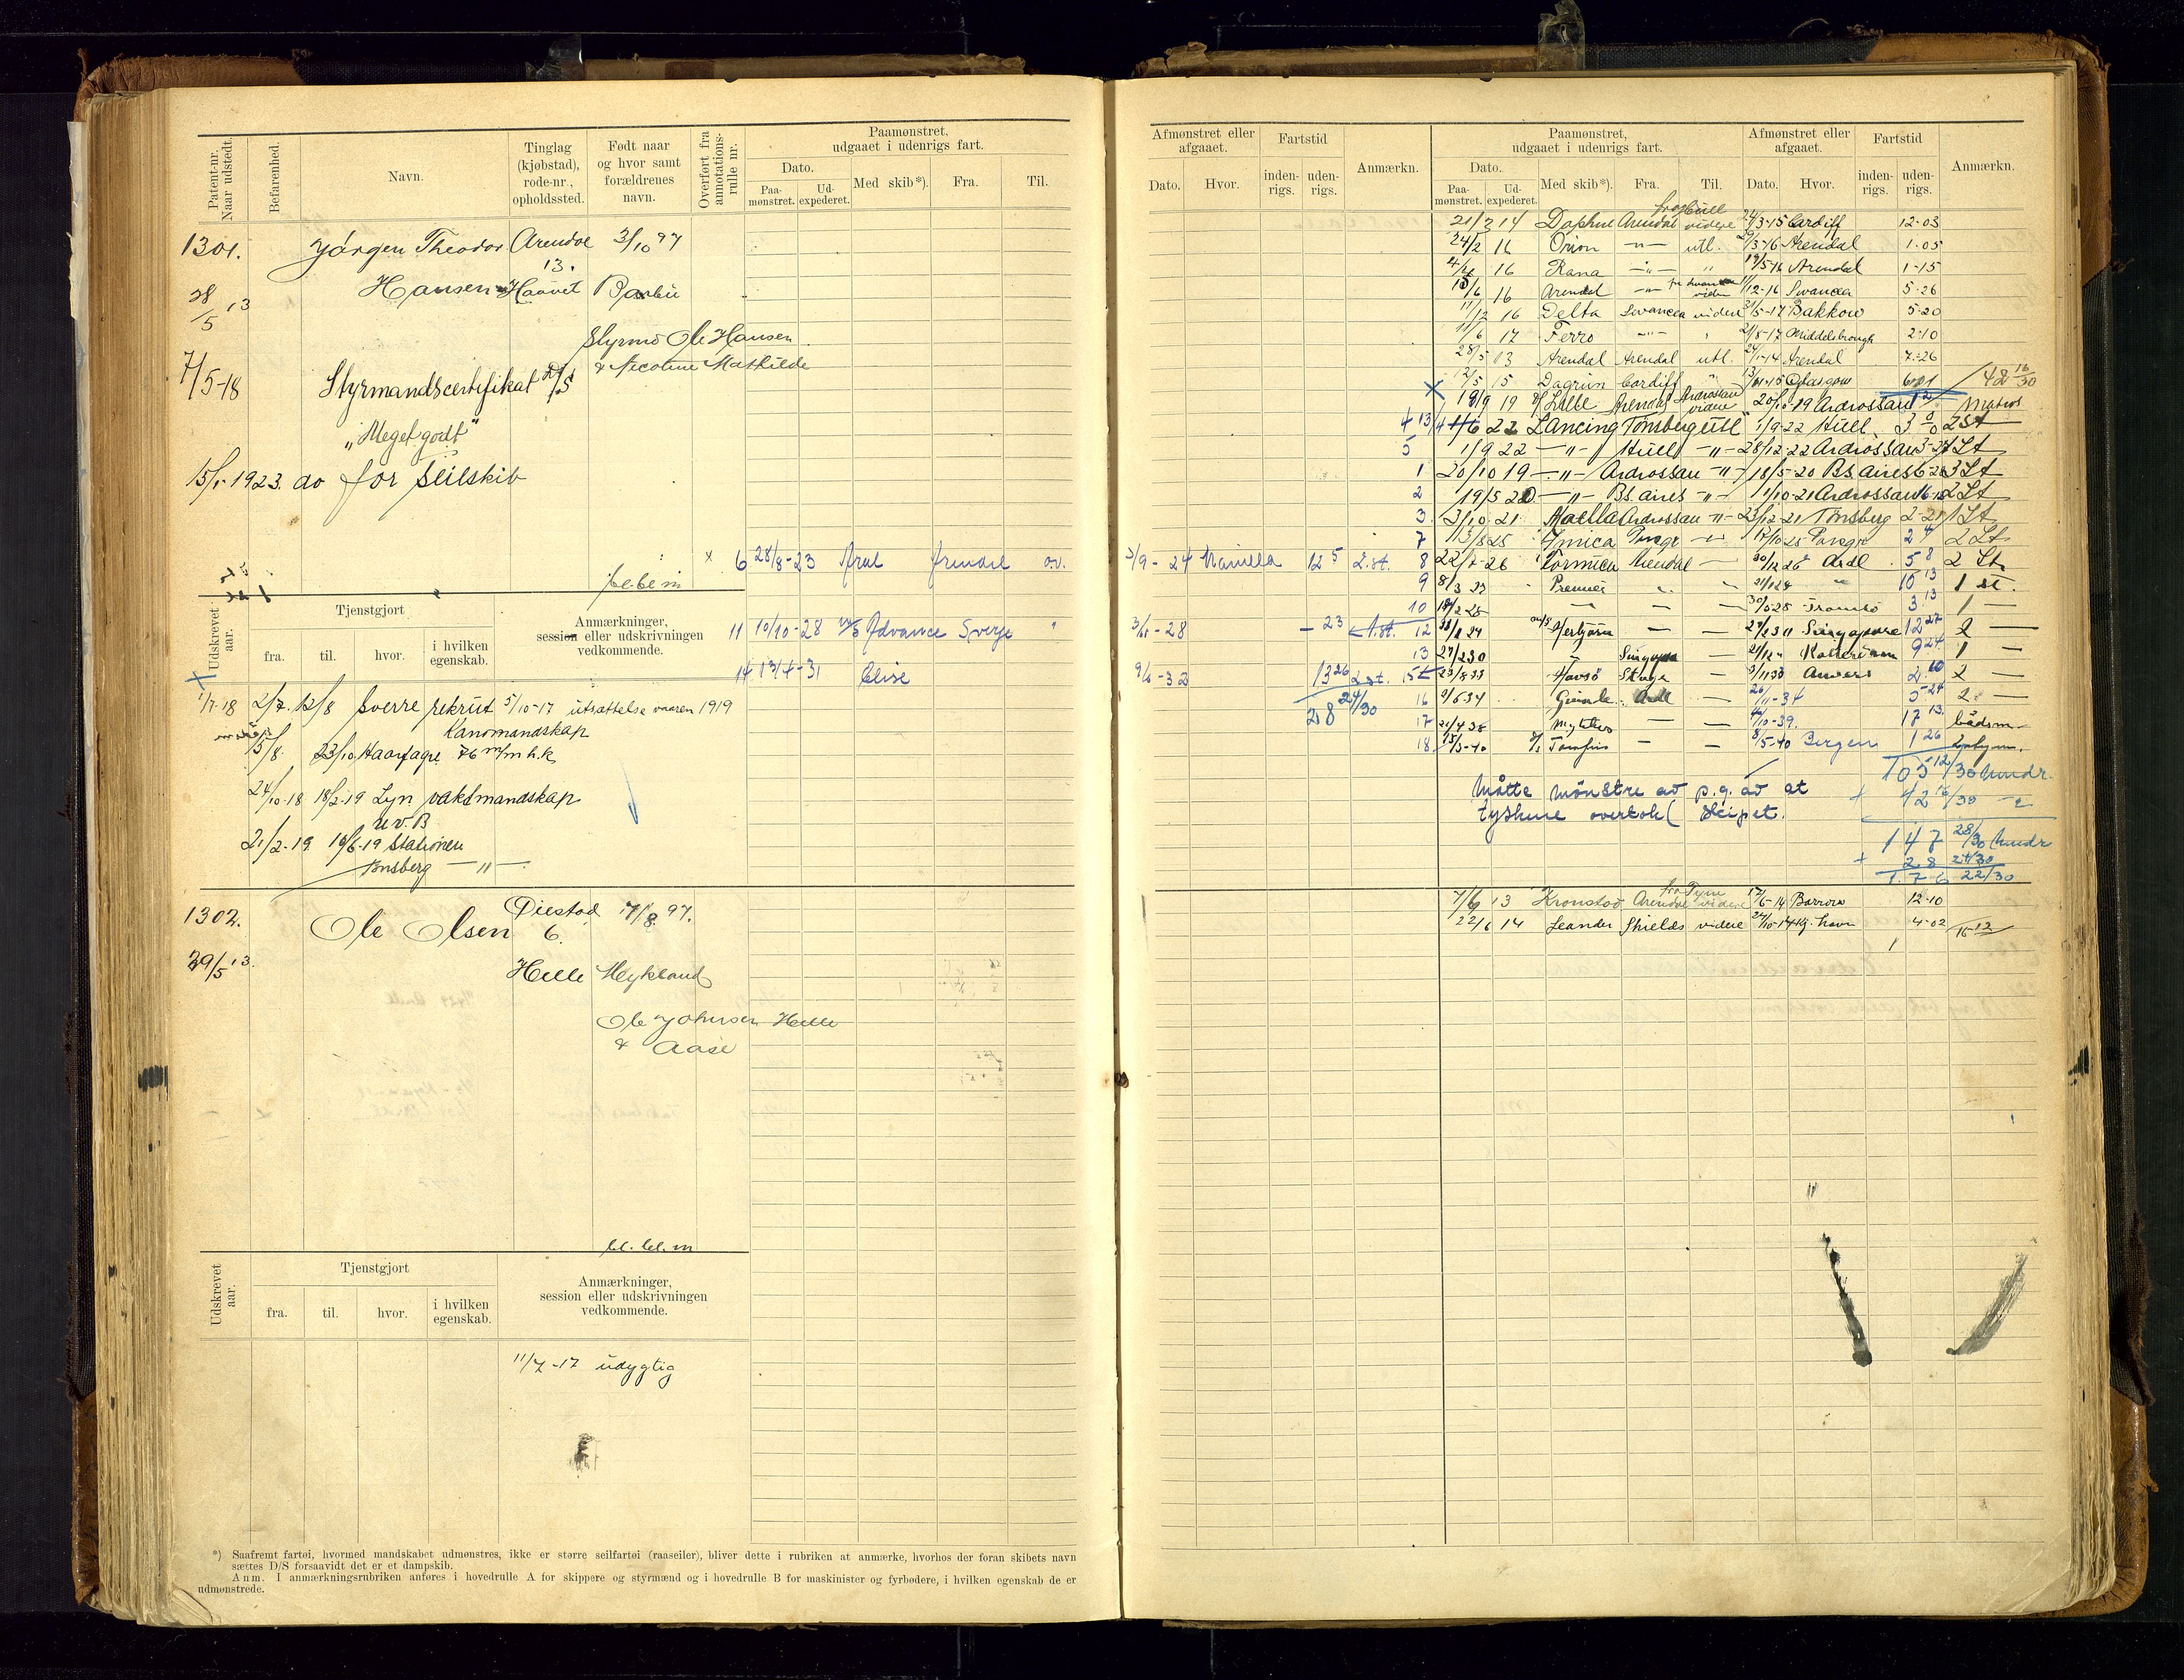 Patent-nr. Naar udstedt.
Befarenhed.
Navn.
Tinglag (kjøbstad), rode-nr., opholdssted.
Født naar og hvor samt forældrenes navn.
Overført fra annotations-rulle nr.
Paamønstret, udgaaet i udenrigs fart.
Dato.
Paa-mønstret.
Ud-expederet.
Med skib*).
Fra.
Til.
1301.
Jørgen Theodor
Arendal
3/10 97
13.
28/5 13
Hansen
Haavet
Barbu
Styrmd Ole Hansen
& Nicoline Mathilde
7/5-18
Styrmandscertifikat D/S
"Meget godt"
15/1-1923. do for seilskib
x 6 28/8-23 Aral Arendal o.v.
bl. bl. m
Udskrevet aar.
Tjenstgjort
fra.
til.
hvor.
i hvilken egenskab.
Anmærkninger, session eller udskrivningen vedkommende.
11 10/10-28 M/S Advance Sverge "
14 13/4-31 Elise
17-18 2/7. 12/8 Sverre rekrut 5/10-17 utsættelse vaaren 1919
Kanonmandskap
15/8. 23/10 Haarfagre 76 m/m h.k.
24/10-18 18/2-19 Lyn vaktmandskap
u.v.B
21/2-19 10/6-19 Stationen
Tønsberg — " —
1302.
Ole Olsen
Øiestad
7/8 97.
6.
29/5 13.
Helle
Myklaud
Ole Johnsen Helle
& Aase
bl. bl. m
Udskrevet aar.
Tjenstgjort
fra.
til.
hvor.
i hvilken egenskab.
Anmærkninger, session eller udskrivningen vedkommende.
11/7-17 udygtig
*) Saafremt fartøi, hvormed mandskabet udmønstres, ikke er større seilfartøi (raaseiler), bliver dette i rubriken at anmærke, hvorhos der foran skibets navn
sættes D/S forsaavidt det er et dampskib.
Anm. I anmærkningsrubriken anføres i hovedrulle A for skippere og styrmænd og i hovedrulle B for maskinister og fyrbødere, i hvilken egenskab de er
udmønstrede.
Afmønstret eller afgaaet.
Dato.
Hvor.
Fartstid
inden-rigs.
uden-rigs.
Anmærkn.
Paamønstret, udgaaet i udenrigs fart.
Dato.
Paa-mønstret.
Ud-expederet.
Med skib*).
Fra.
Til.
Afmønstret eller afgaaet.
Dato.
Hvor.
Fartstid
inden-rigs.
uden-rigs.
Anmærkn.
fra Hull
21/2 14 Daphne Arendal videre 24/3-15 Cardiff 12-03
24/2 16 Orion —"— utl. 29/3-16 Arendal 1-05
4/4 16 Rana —"— " 19/5-16 Arendal 1-15
15/6 16 Arendal —"— fra Swansea videre 11/12-16 Swansea 5-26
11/12 16 Delta Swansea videre 31/5-17 Bakkow 5-20
11/6 17 Ferro —"— " 21/8-17 Middelsbrough 2-10
28/5 13 Arendal Arendal utl. 24/1-14 Arendal 7-26
12/5 15 Dagrun Cardiff " 13/11-15 Glasgow 6-01 42 16/30
x 18/9 19 Arendal Ardrossan videre 20/10-19 Ardrossan 1 2 Matros
4 1/6 22 Lancing Tønsberg utl " 1/9-22 Hull 3 0 2 St
5 1/9 22 —"— Hull —"— 28/12-22 Ardrossan 3-27 1 St
1 20/10 19 —"— Ardrossan —"— 18/5-20 Bs. aires 6-28 3 St
2 19/5 20 —"— Bs. aires —"— 1/10-21 Ardrossan 16-12 2 St
3. 3/10 21. Ardrossan —"— 23/12-21 Tønsberg 2-21 1 St
7 13/8 25 17/10 25 2 4 2 St.
3/9-24 Manilla 12 5 2. st. 8 22/7-26 Formica Arendal — 30/12 26 Ardl 5 8 2 St.
9 8/3 Premier " 10 13 1 st.
10 " — — Tromsø 3 13 1 —
3/11-28 — 23 1. st. 12 — — Singapore 12 27 2 —
13 27/2 30 " Singapore — 9 24 1 —
9/6-32 13 26 2. st. 15 23/8 33 Havsø — Anvers 2 10 2 —
28 24/30 16 9/6 34 Ardl — 26/11-34 5-24 2. —
17 21/4 38 — — 4/10-39. 17 13. bådsm.
18 15/3-40 — — 8/5-40 Bergen 1 26
105 12/30 Mndr.
Måtte mönstre av p.g. av at
+ 42 16/30 —
tyskerne overtok skipet.
147 28/30 Mndr
+ 28 24/30
176 22/30
fra Tyne
7/6 13 Kronstad Arendal videre 17/6-14 Barrow 12-10
22/6 14 Leander Shields videre 24/10-14 Kj. havn 4-02 16 12